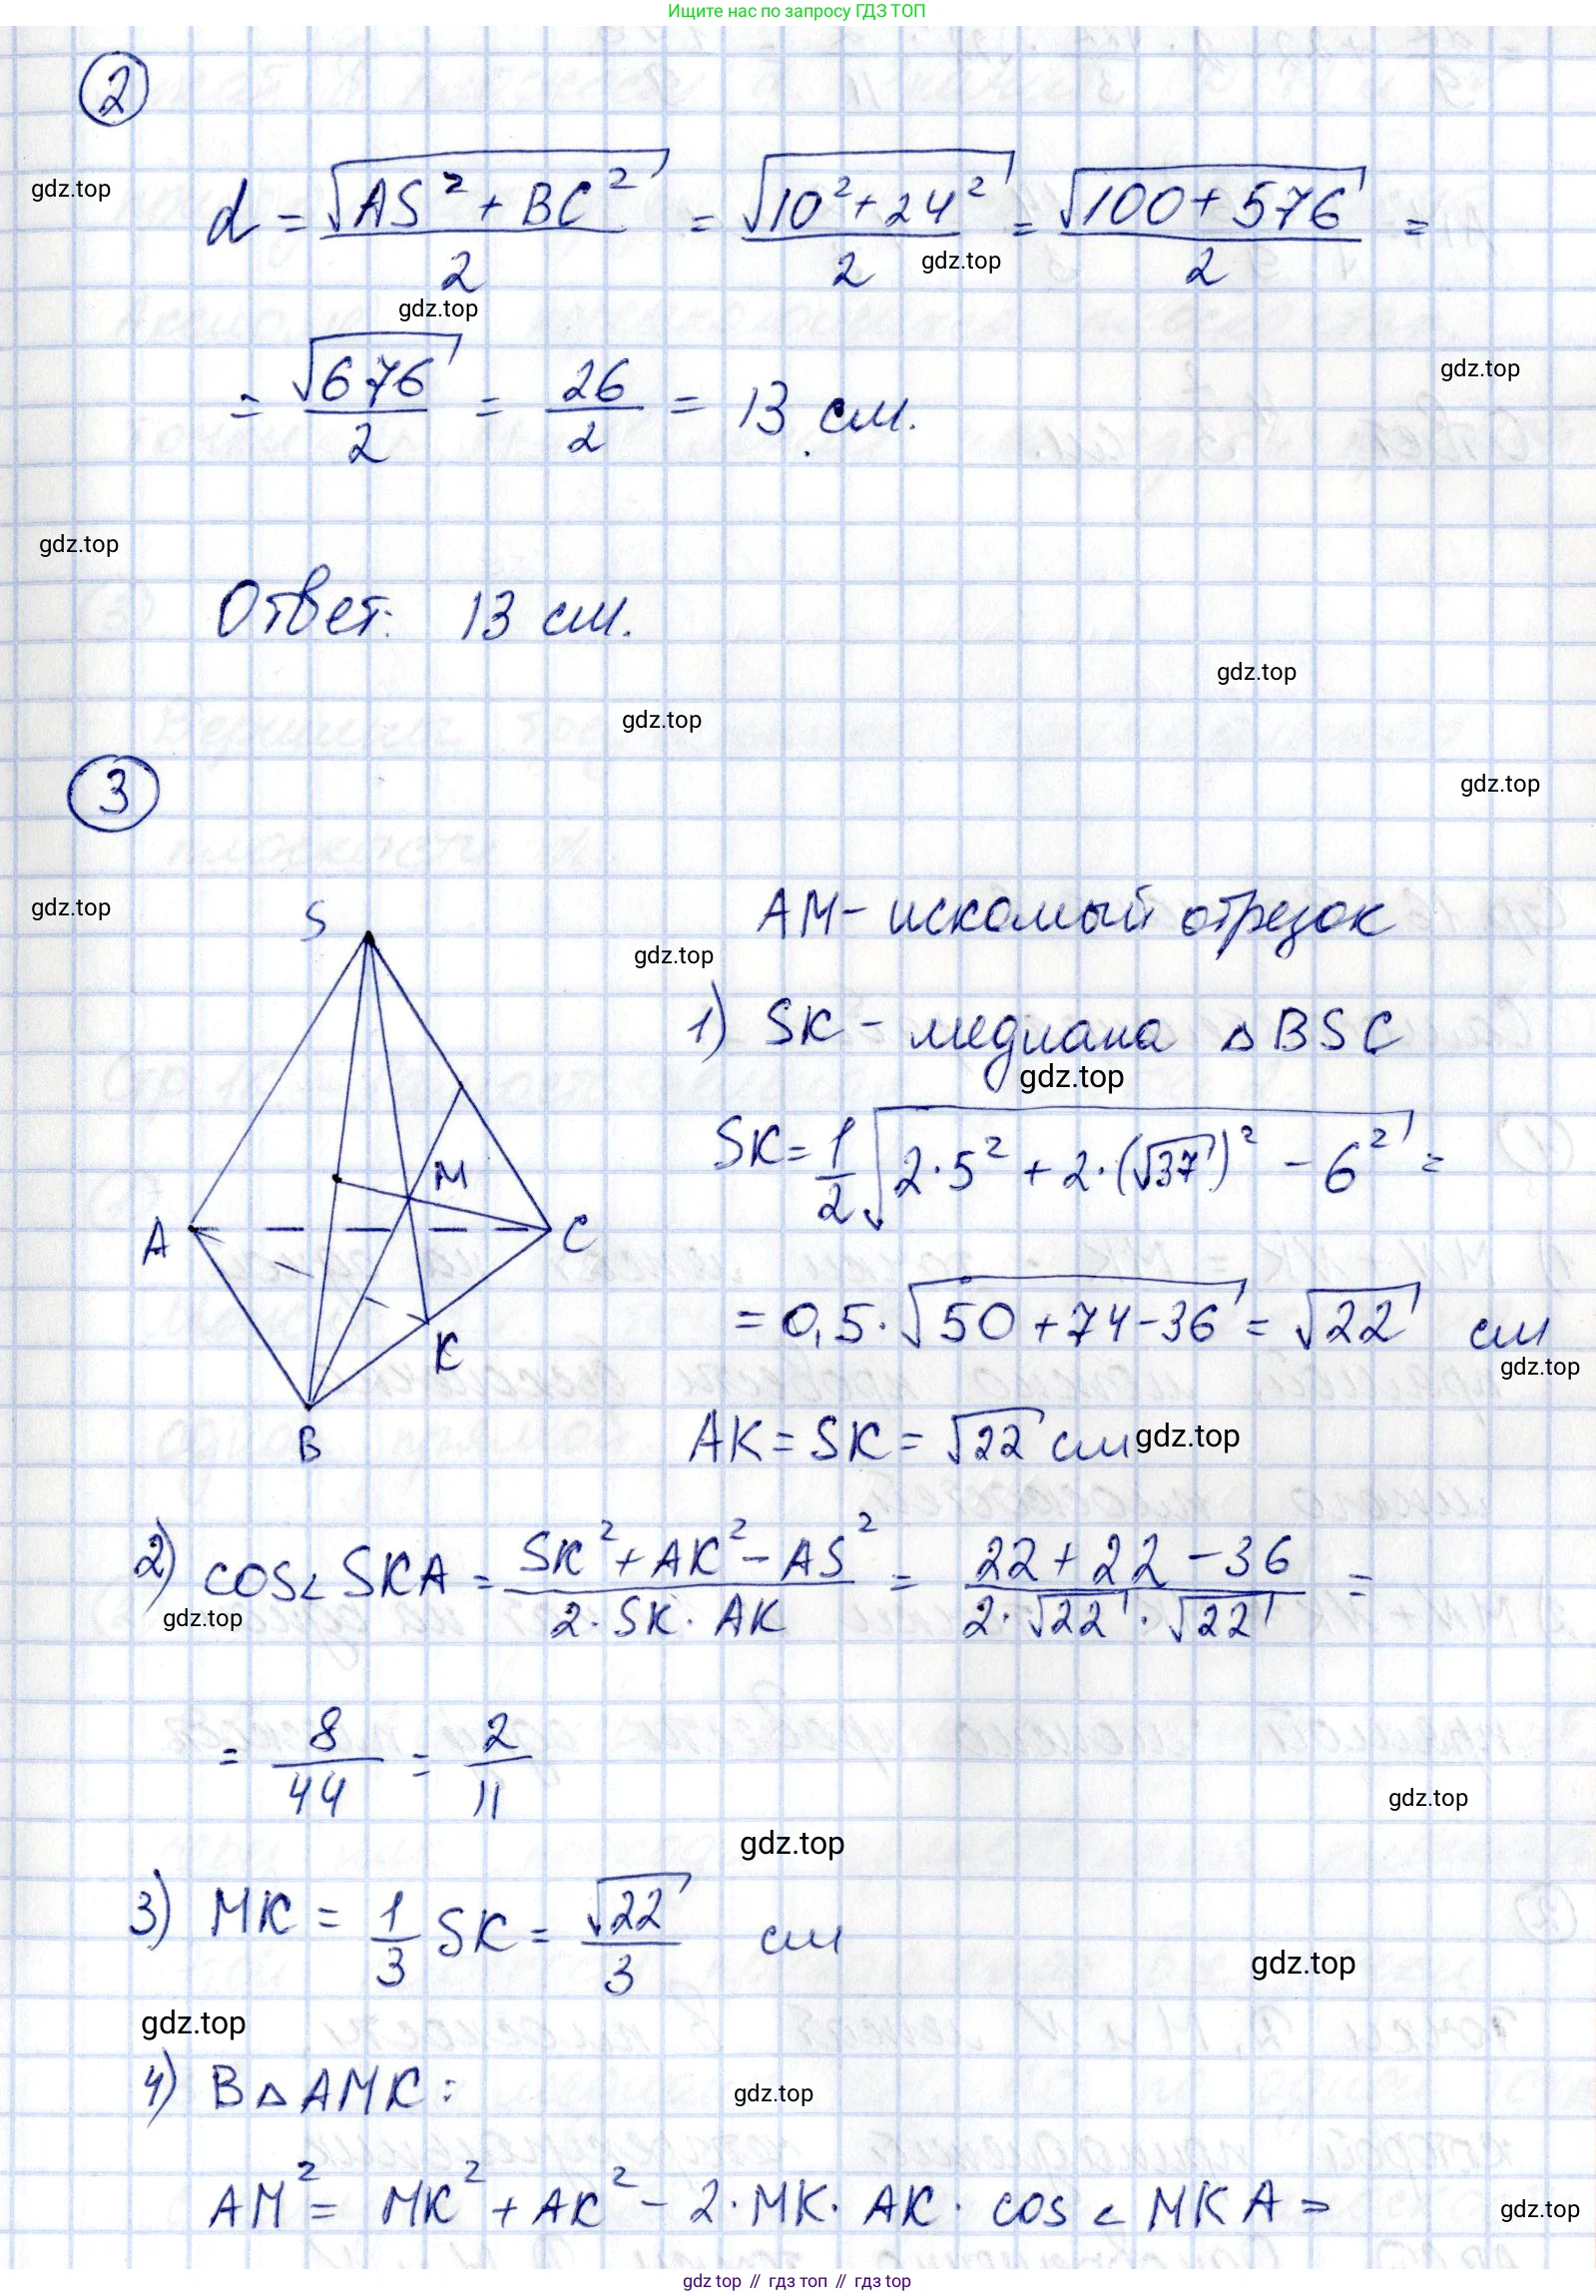 Ищите нас по запросу ГДЗ ТОП
2
gdz.top
d = √(AS² + BC²) / 2 = √(10² + 24²) / 2 = √(100 + 576) / 2 =
gdz.top
gdz.top
= √676 / 2 = 26 / 2 = 13 см.
gdz.top
gdz.top
Ответ: 13 см.
gdz.top
gdz.top
3
gdz.top
gdz.top
S
AM - искомый отрезок
gdz.top
1) SK - медиана △BSC
gdz.top
SK = 1/2 √(2·5² + 2·(√37)² - 6²) =
M
A
C
= 0,5·√(50 + 74 - 36) = √22 см
K
gdz.top
B
AK = SK = √22 см
gdz.top
2) cos∠SKA = (SK² + AK² - AS²) / (2·SK·AK) = (22 + 22 - 36) / (2·√22·√22) =
gdz.top
= 8/44 = 2/11
gdz.top
gdz.top
3) MK = 1/3 SK = √22 / 3 см
gdz.top
gdz.top
4) В △AMK:
gdz.top
AM² = MK² + AK² - 2·MK·AK·cos∠MKA =
gdz.top
gdz top // гдз топ // гдз top